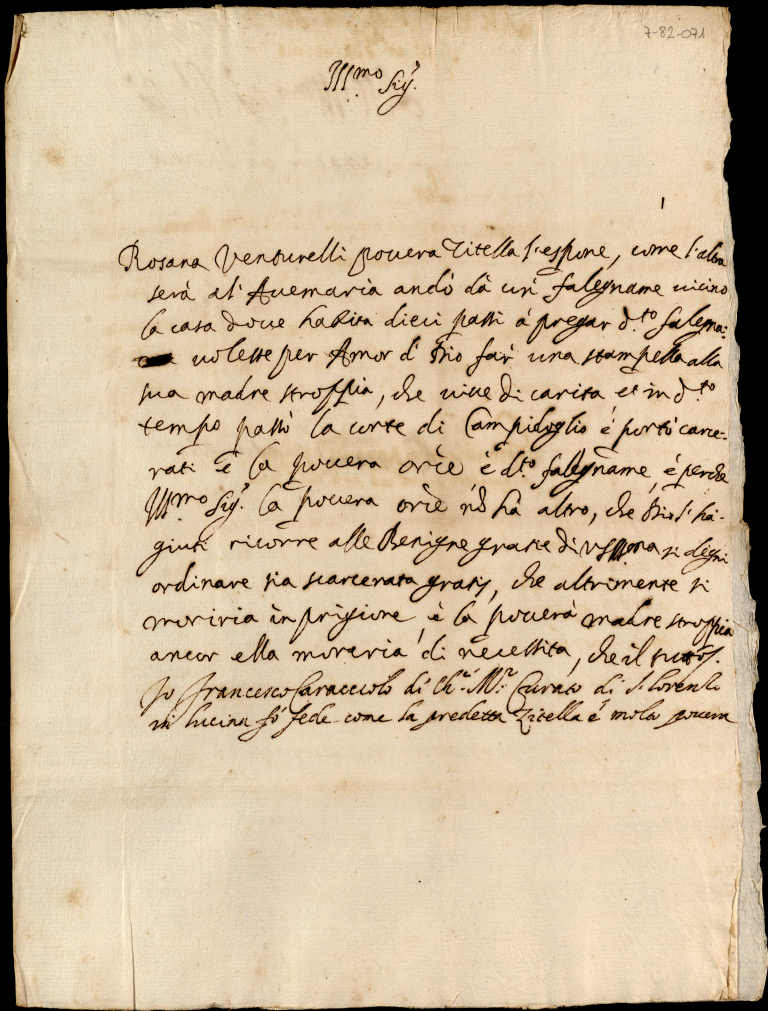 7-82-071
Ill.mo Sig.r
Rosana Venturelli povera Zitella l'espone, come l'altra
serà al' Avemaria andò dà un' falegname vicino
la casa dove habita dieci passi à pregar d.to falegna:
volesse per Amor d' Dio far' una stampella alla
sua madre stroppia, che vive di carità et in d.to
tempo passò la corte di Campidoglio è portò carce:
rati è la povera or̃ce è d.to falegname, è perche
Ill.mo Sig.r la povera or̃ce nõ hà altro, che Dio l'ha-
giuti ricorre alle Benigne gratie di VSIll.ma si degni
ordinare sia scarcerata gratis, che altrimente si
moriria in prigione, è la poverà madre stroppia
ancor ella moreria di necessità, che il tutto s.
Io Francesco Caracciolo di Ch.ci M.ri Curato di S. Lorenzo
in lucina fò fede come la predetta Zitella è molto povera